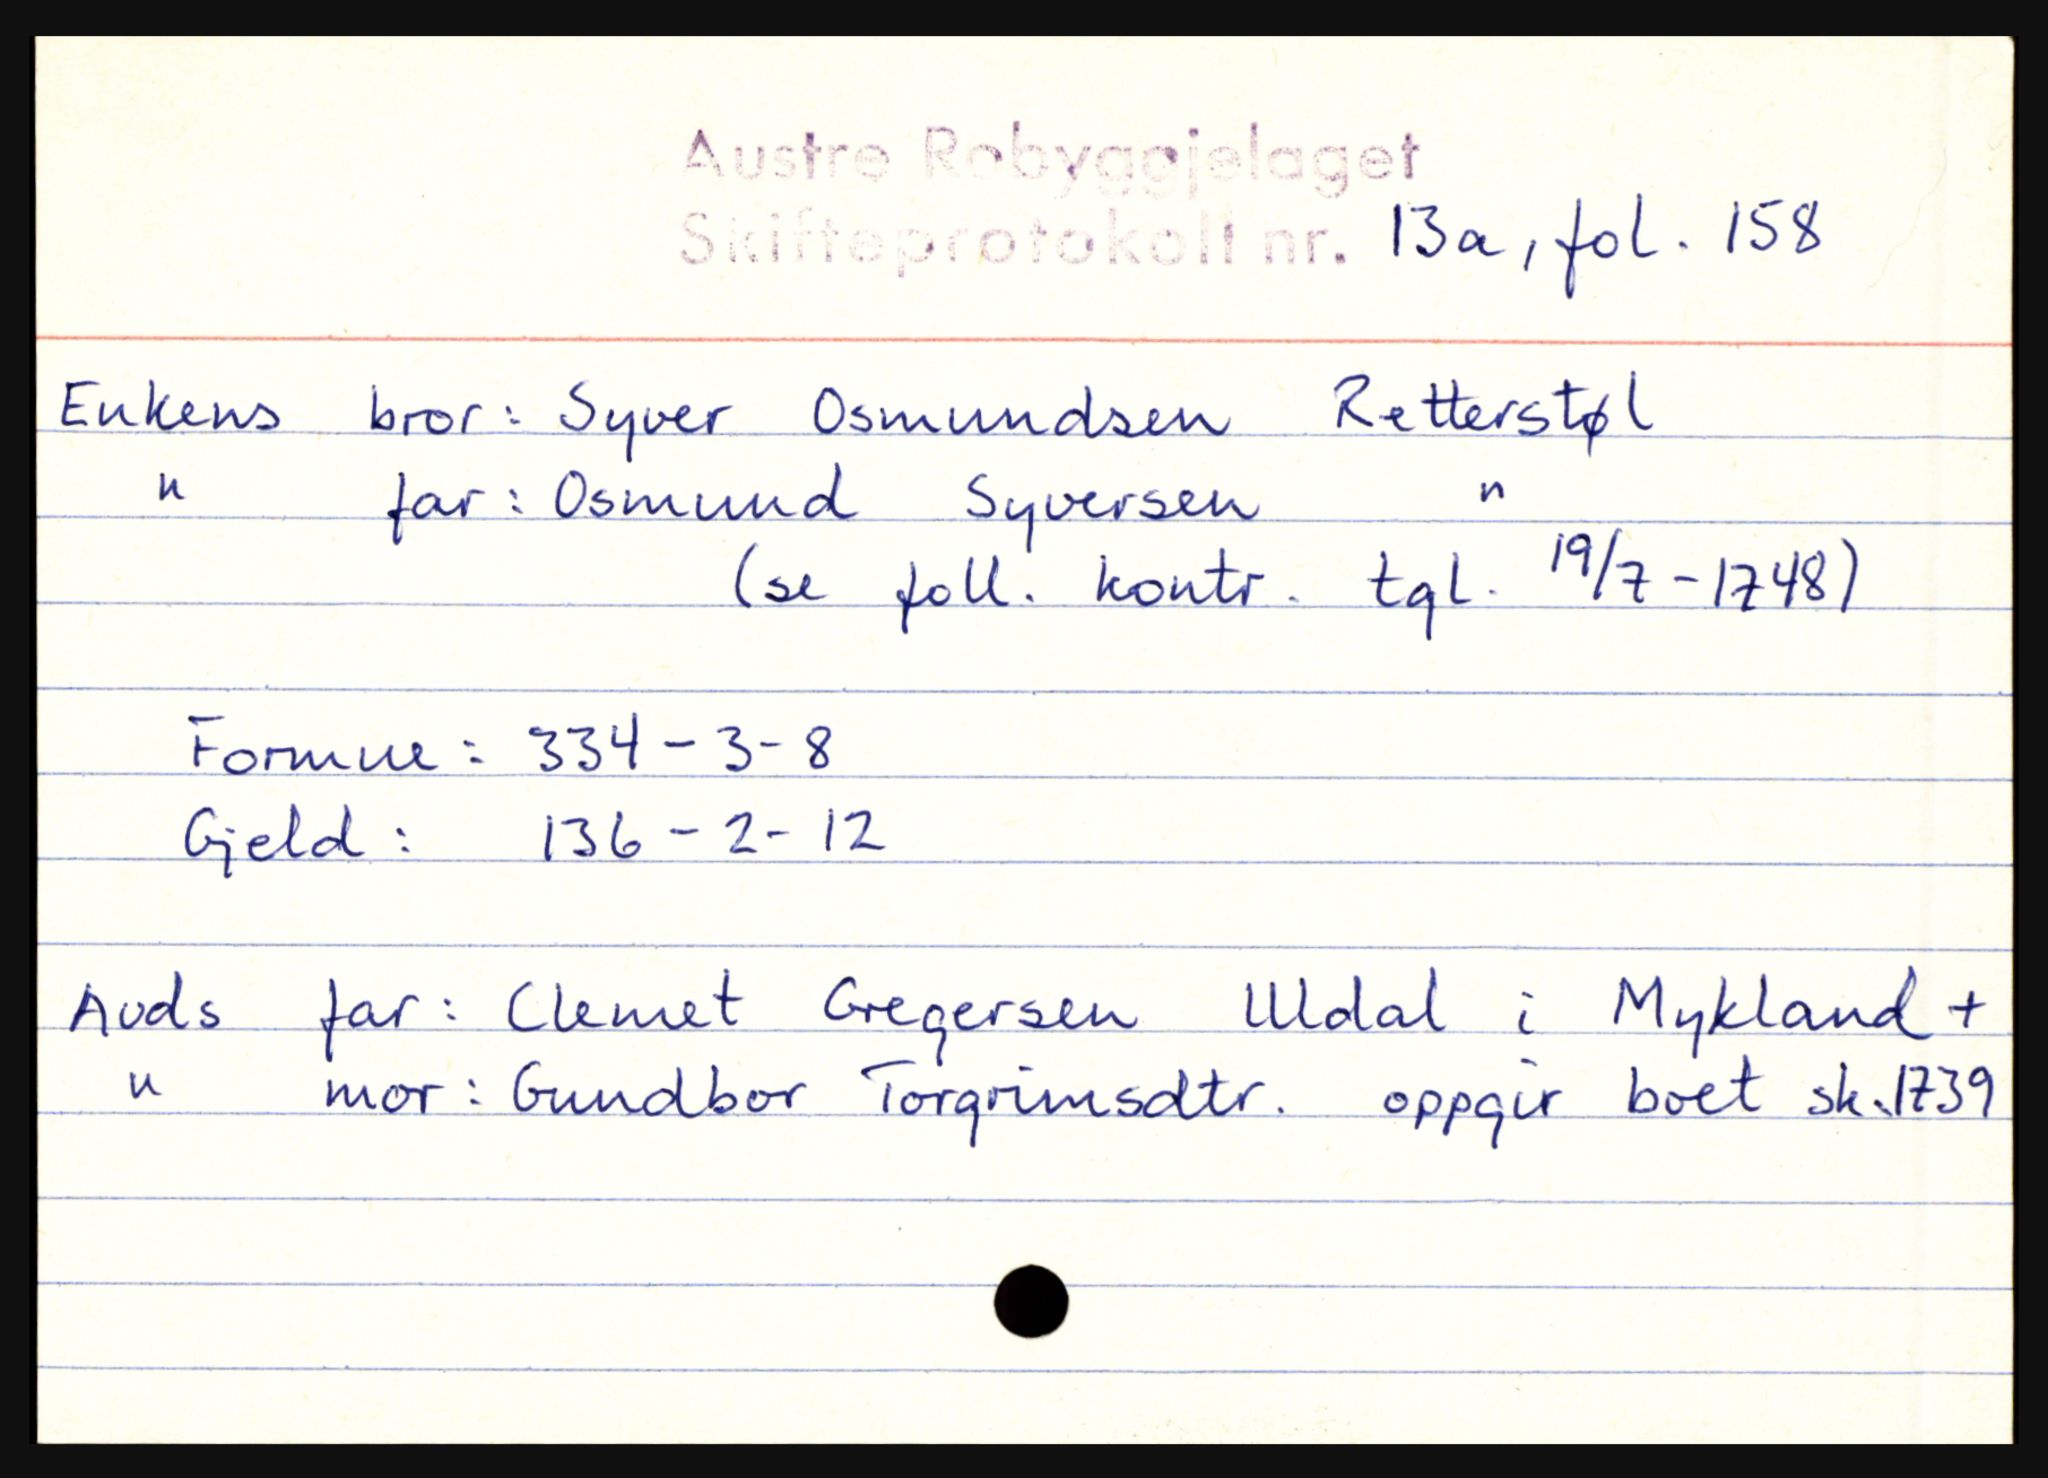 Austre Robyggjelaget
Skifteprotokoll nr. 13a, fol. 158
Enkens bror: Syver Osmundsen Retterstøl
" far: Osmund Syversen "
(se foll. kontr. tgl. 19/7-1748)
Formue: 334-3-8
Gjeld: 136-2-12
Auds far: Clemet Gregersen Uldal i Mykland +
" mor: Gundbor Torgrimsdtr. oppgir boet sk.1739